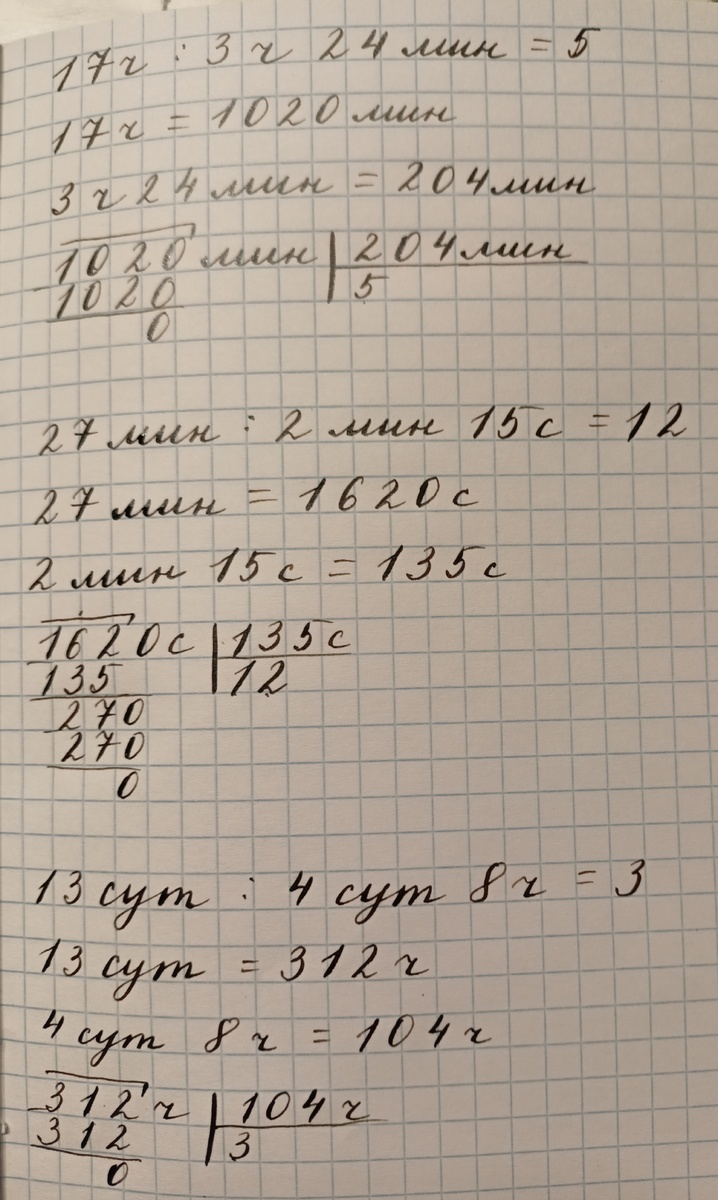 17ч : 3ч 24мин = 5
17ч = 1020мин
3ч 24мин = 204мин
1020мин | 204мин
1020 | 5
0
27мин : 2мин 15с = 12
27мин = 1620с
2мин 15с = 135с
1620с | 135с
135 | 12
270
270
0
13сут : 4сут 8ч = 3
13сут = 312ч
4сут 8ч = 104ч
312ч | 104ч
312 | 3
0